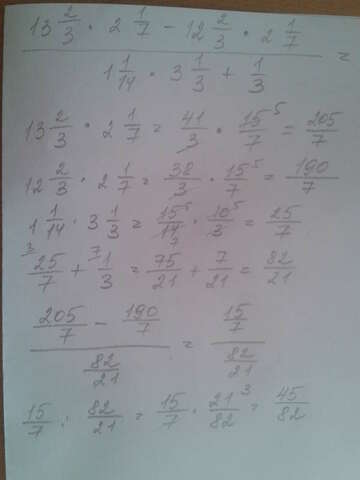 (13 2/3 · 2 1/7 - 12 2/3 · 2 1/7) / (1 1/14 · 3 1/3 + 1/3) =
13 2/3 · 2 1/7 = 41/3 · 15⁵/7 = 205/7
12 2/3 · 2 1/7 = 38/3 · 15⁵/7 = 190/7
1 1/14 · 3 1/3 = 15⁵/14₇ · 10⁵/3 = 25/7
³25/7 + ⁷1/3 = 75/21 + 7/21 = 82/21
(205/7 - 190/7) / (82/21) = (15/7) / (82/21)
15/7 : 82/21 = 15/7 · 21³/82 = 45/82